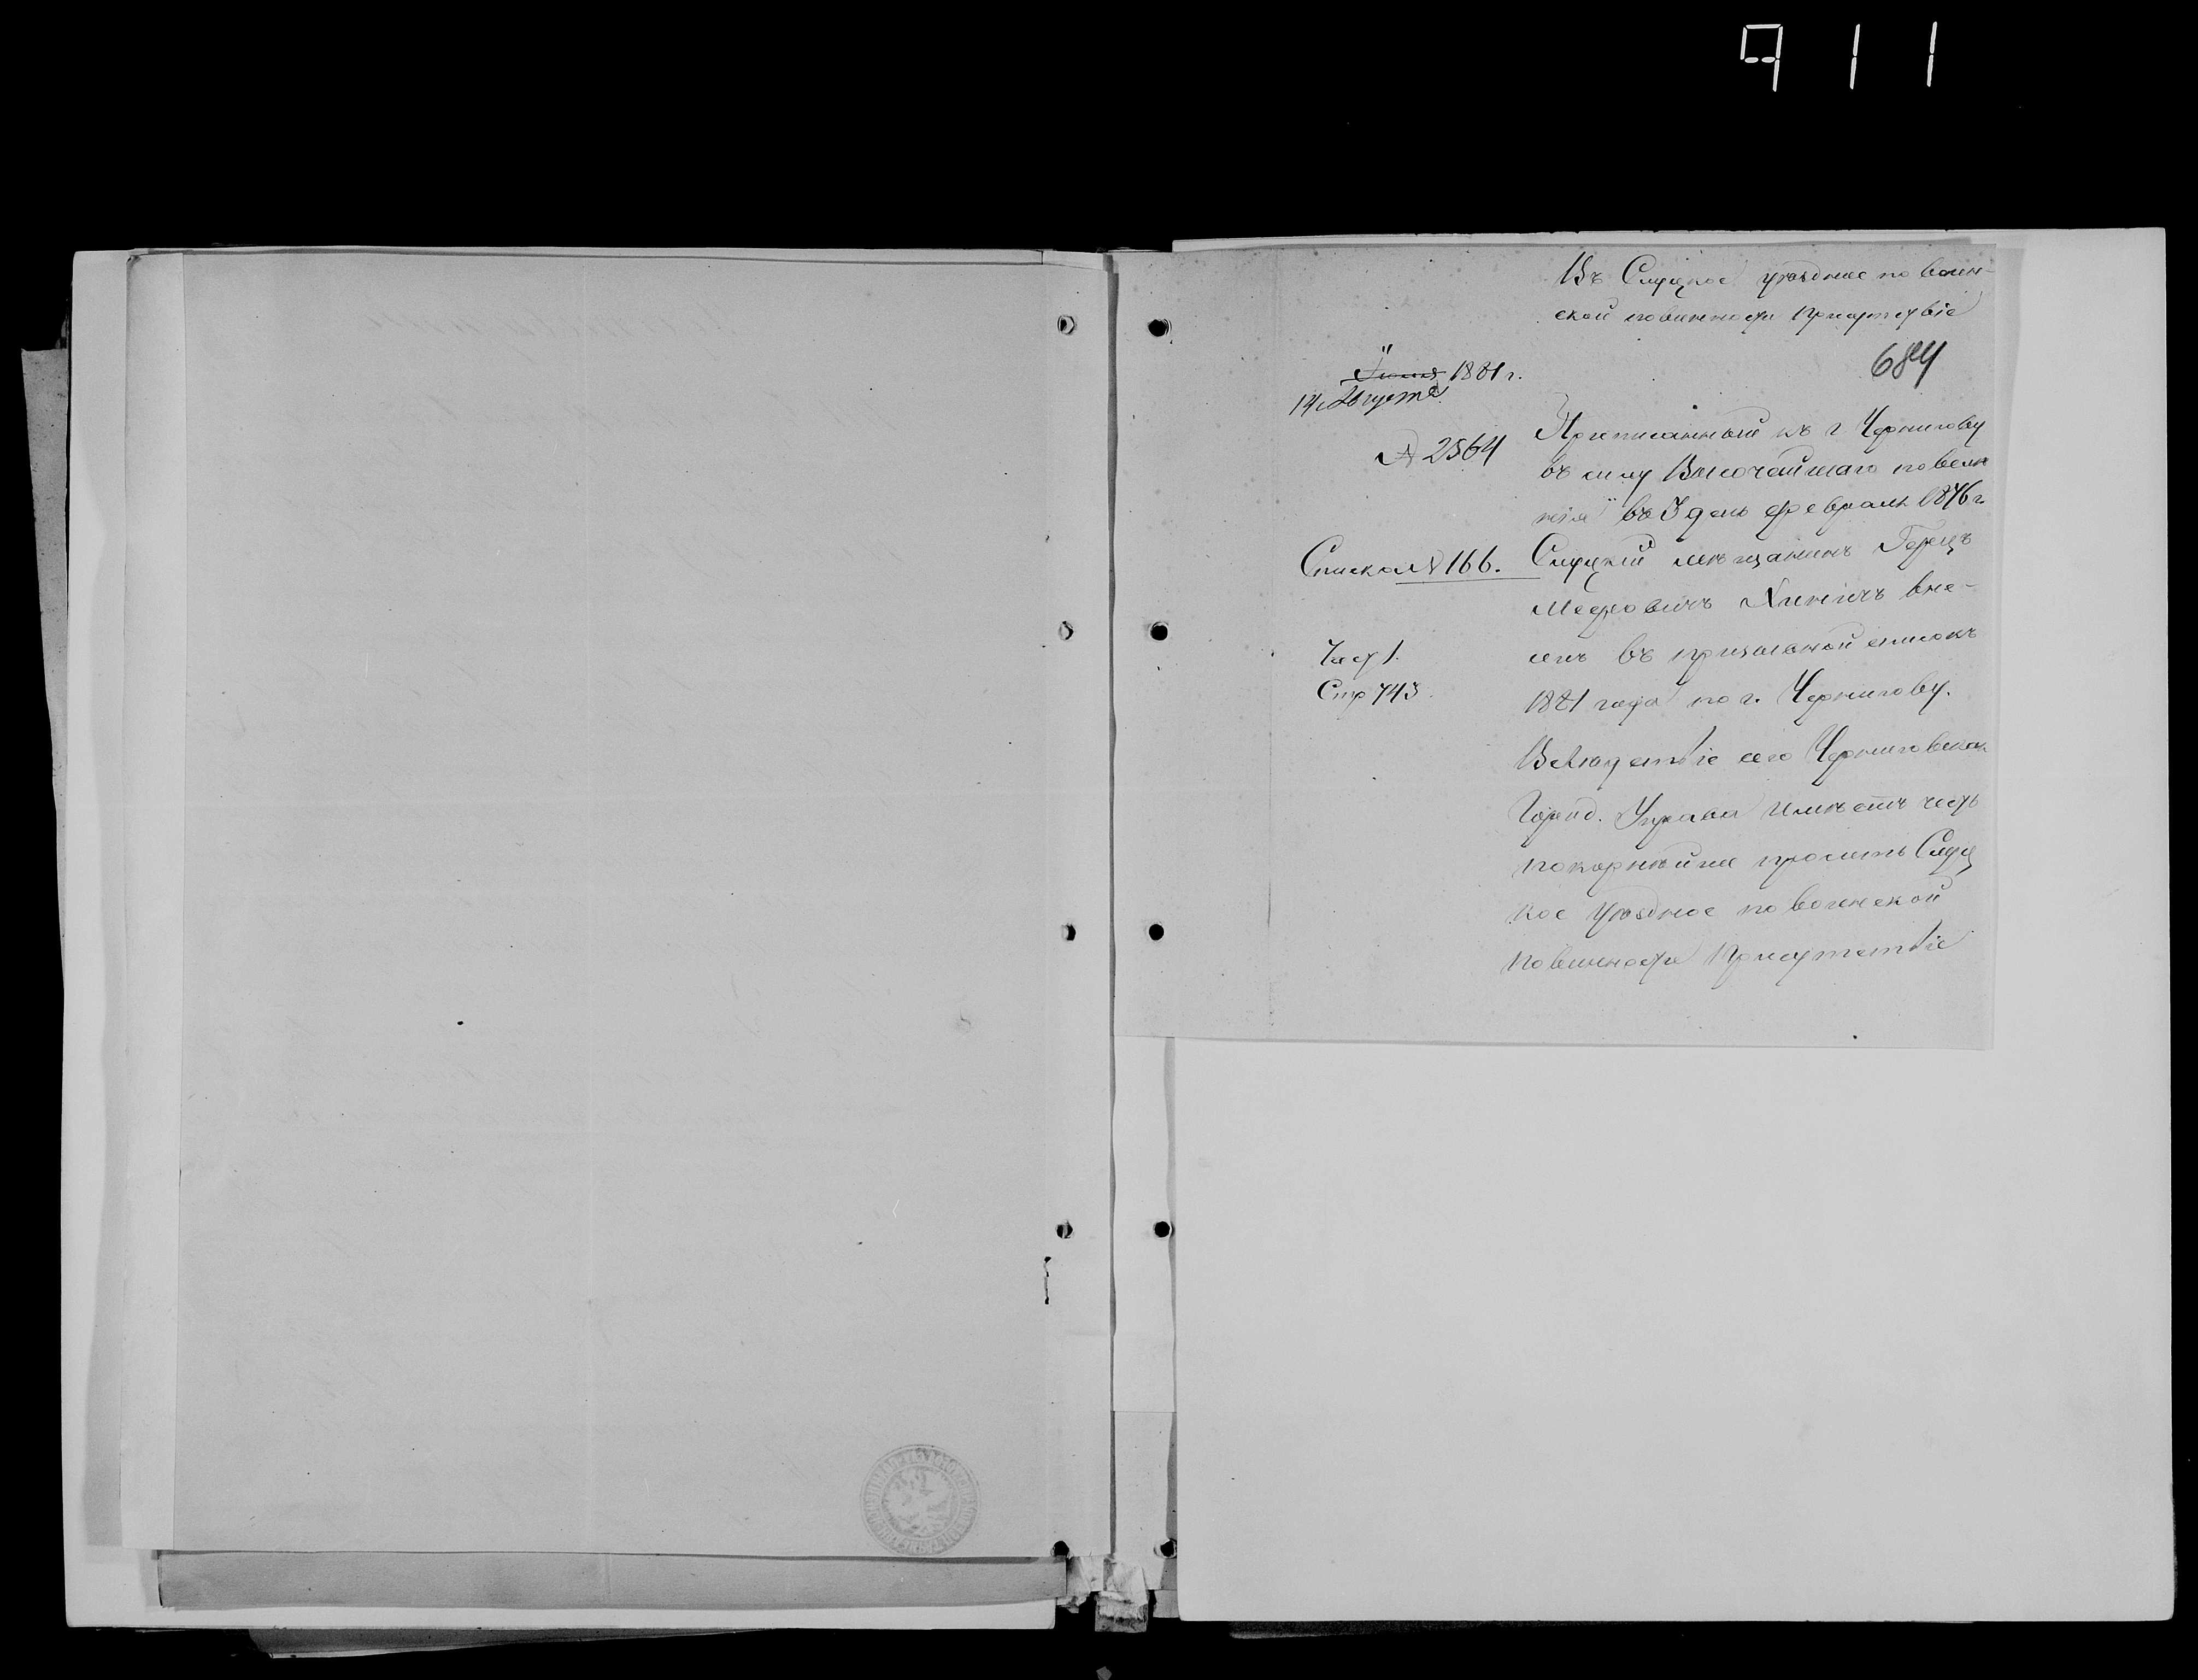 911
Въ Слуцкое уѣздное по воин-
ской повинности Присутствіе
684
" Іюня 1881 г.
14 Августа
№ 2564
Приписанный къ г. Чернигову
въ силу Высочайшаго повелѣ
нія въ 3 день февраля 1876 г.
Списка № 166.
Слуцкій мѣщанинъ Герцъ
вне-
Част 1.
Стр 743
сенъ въ призывной списокъ
1881 года по г. Чернигову.
Вслѣдствіе сего Черниговская
Город. Управа имѣетъ честь
покорнѣйше просить Слуц
кое уѣздное по воинской
повинности Присутствіе